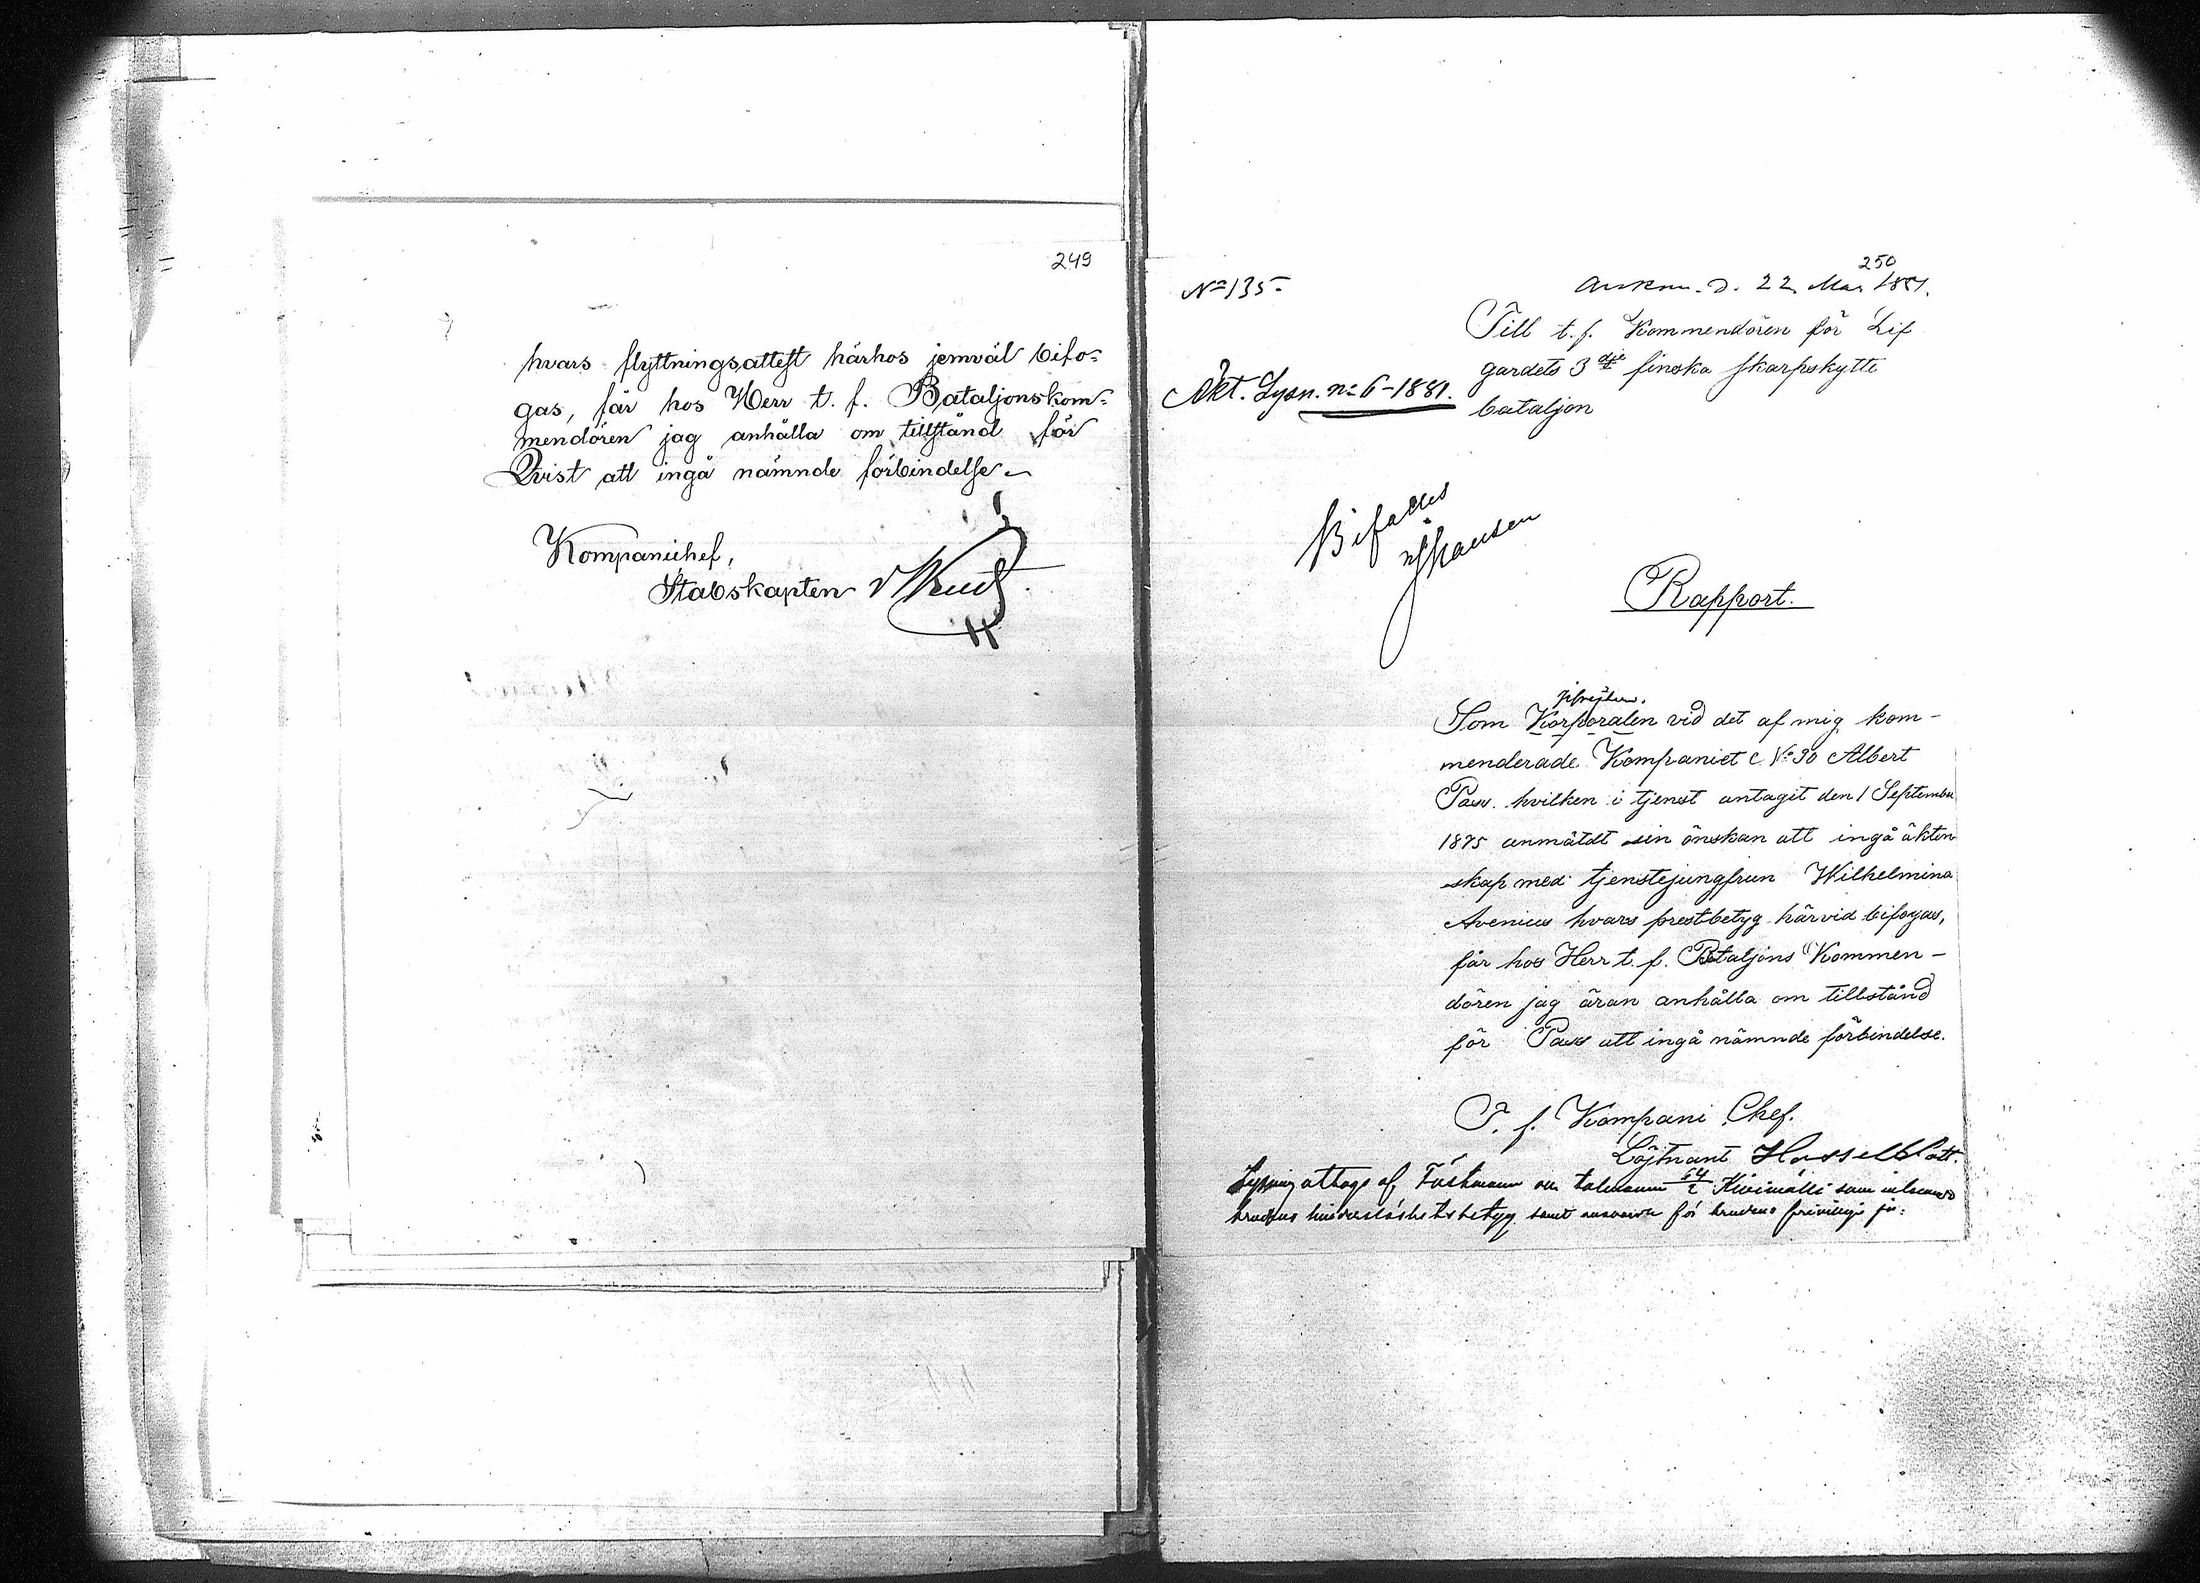 249
hvars flyttningsattest härhos jemväl bifo-
gas, får hos Herr t. f. Bataljonskom-
mendören jag anhålla om tillstånd för
Qvist att ingå nämnde förbindelse.
Kompanichef,
Stabskapten
250
No 135.
Ankom. d. 22 Mar 1881.
Till t. f. Kommendören för Lif
gardets 3dje finska skarpskytte
bataljon
Äkt. Lysn. no 6-1881.
Bifalles
Rapport.
Som Korporalen vid det af mig kom-
menderade Kompaniet No 30 Albert
Pass hvilken i tjenst antagit den 1 September
1875 anmäldt sin önskan att ingå äkten
skap med tjenstejungfrun Wilhelmina
Avenius hvars prestbetyg härvid bifogas,
får hos Herr t. f. Bataljons Kommen-
dören jag äran anhålla om tillstånd
för Pass att ingå nämnde förbindelse.
T. f. Kompani Chef.
Löjtnant Hasselblatt.
Lysning uttogs af
brudens hinderslöshetsbetyg samt för brudens